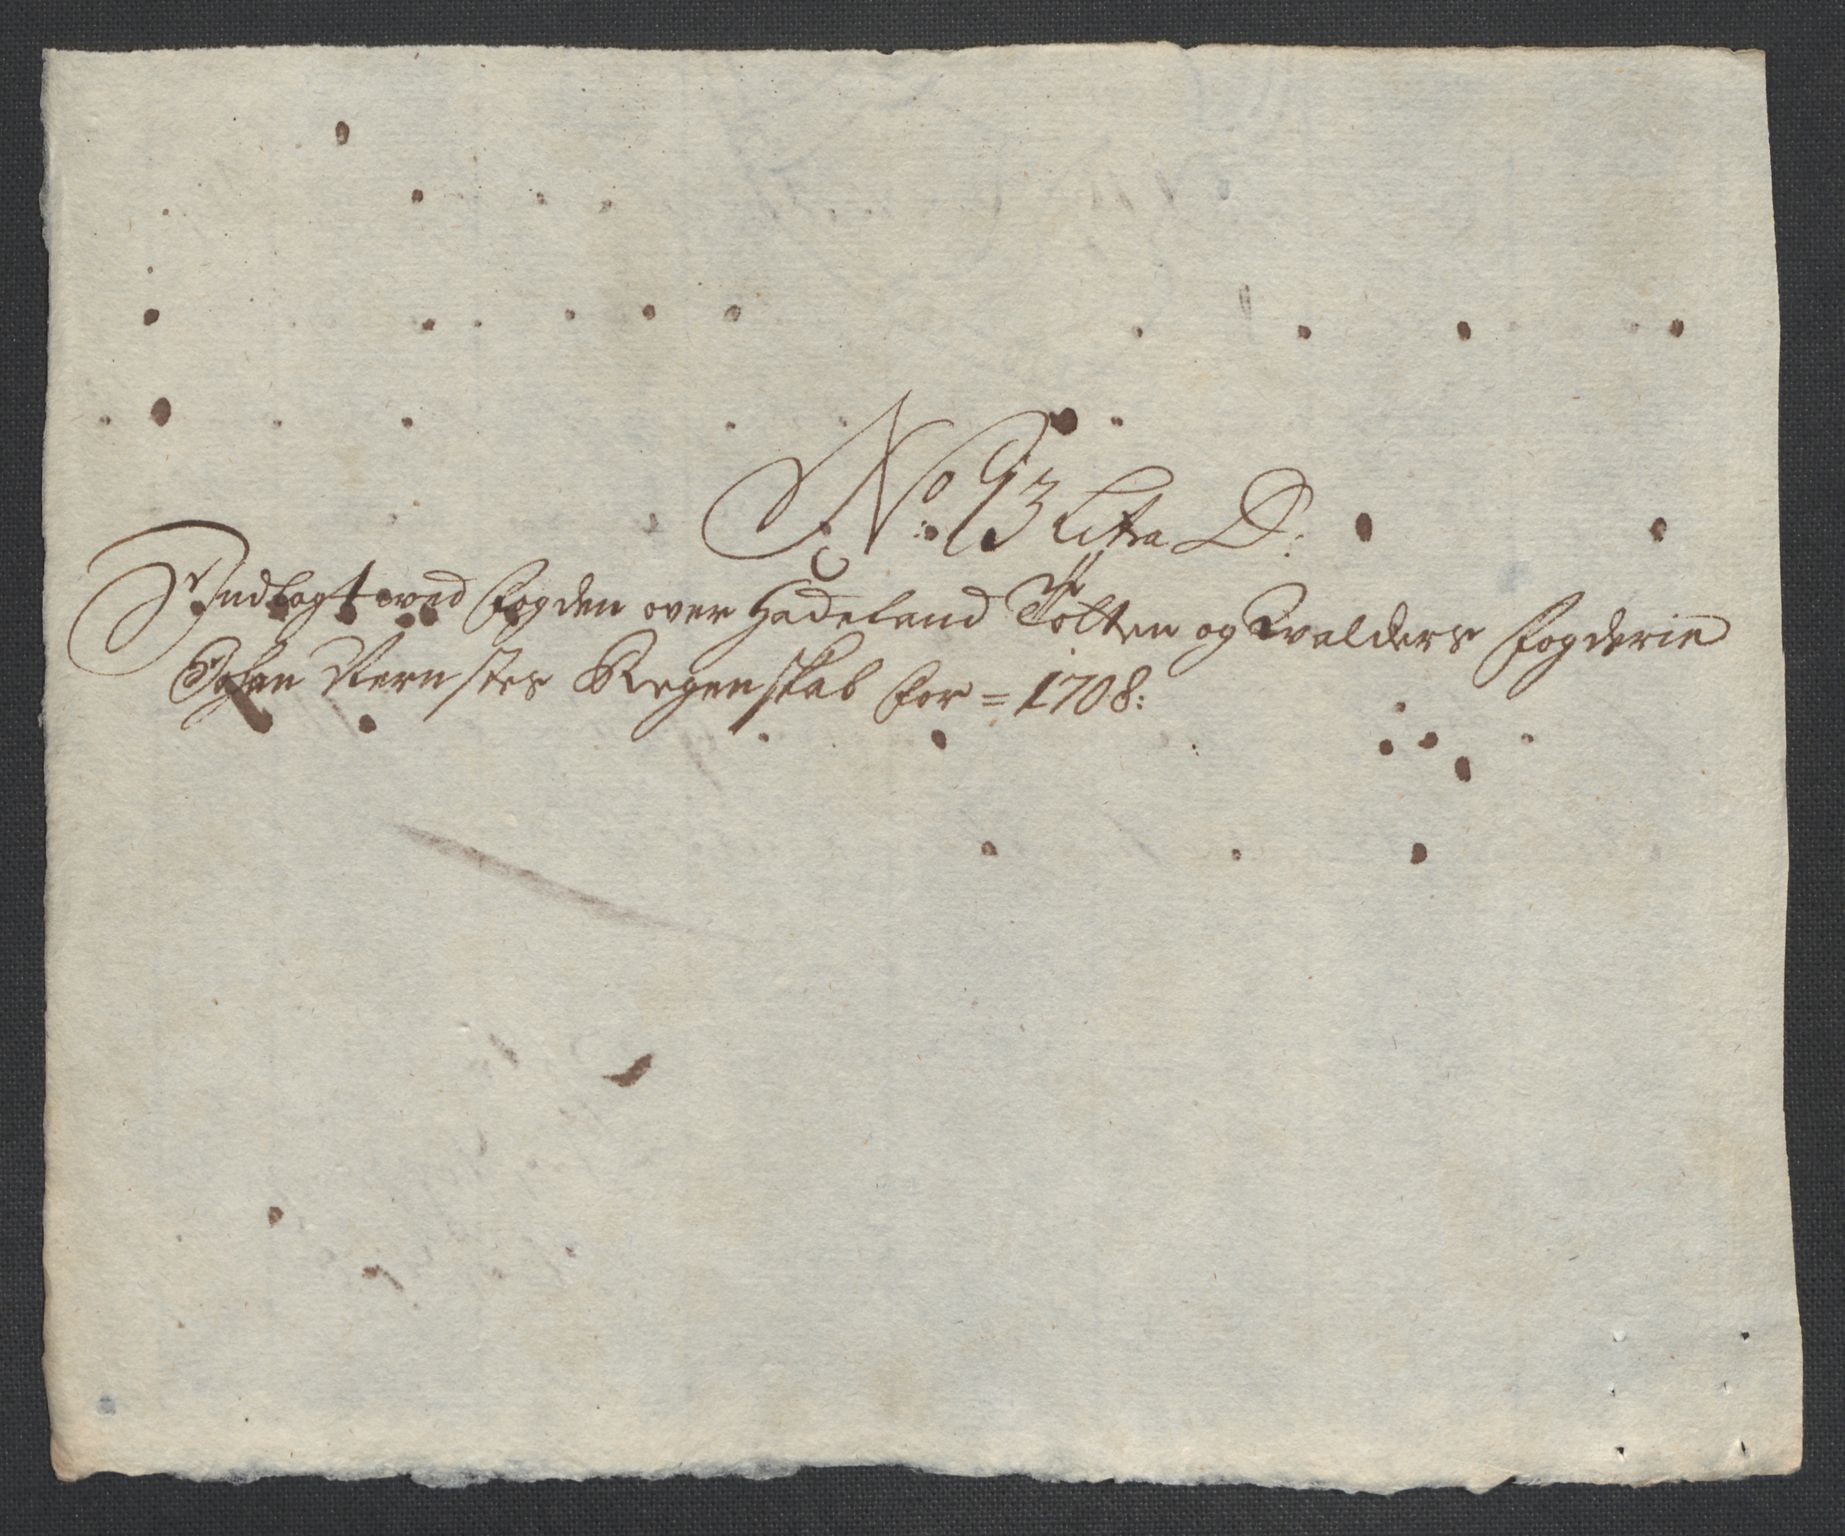 No: 93 Litra D:
Indlagt wed fogden over Hadeland Totten og Walders fogderie
Johan Vernstes Regenskab for = 1708: